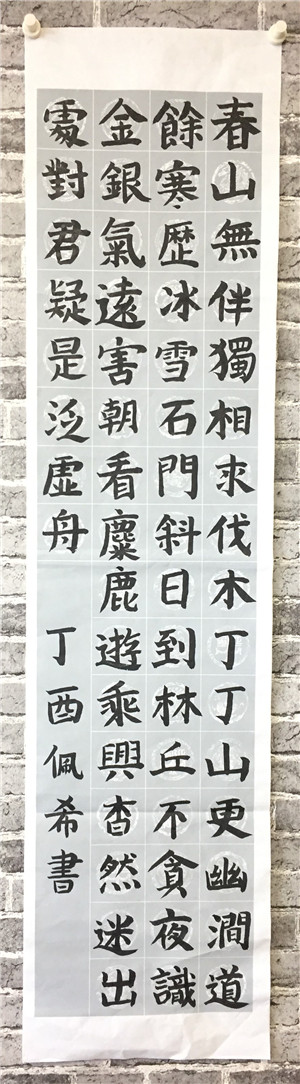 春山無伴獨相求伐木丁丁山更幽澗道
餘寒歷冰雪石門斜日到林丘不貪夜識
金銀氣遠害朝看麋鹿遊乘興杳然迷出
處對君疑是泛虛舟 丁酉佩希書